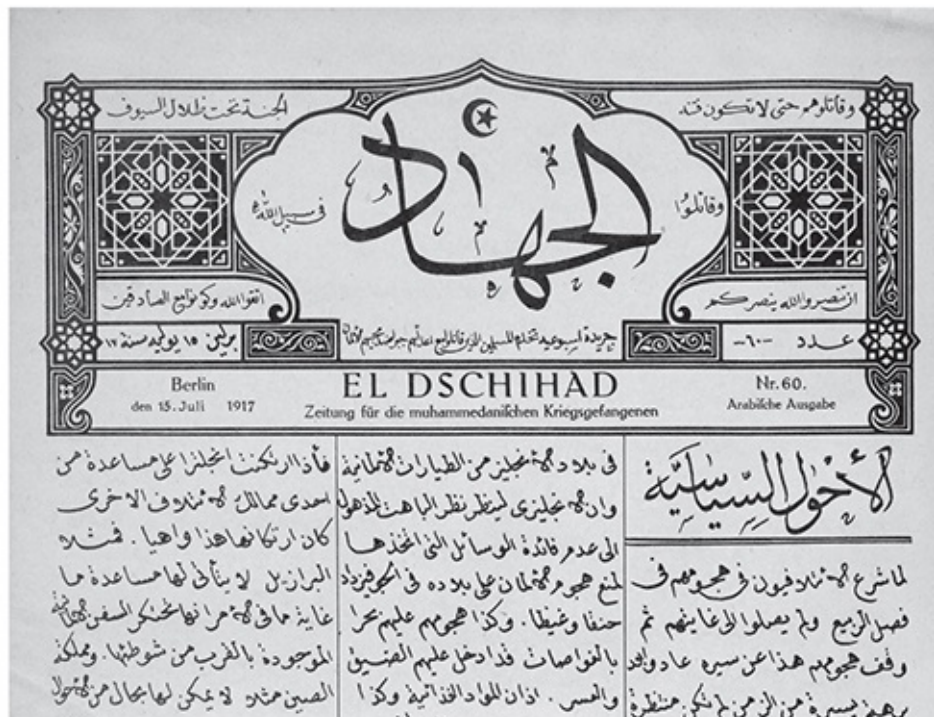 وقاتلوهم حتى لا تكون فتنة
الجنة تحت ظلال السيوف
الجهاد
وقاتلوا
في سبيل الله
ان تنصروا الله ينصركم
اتقوا الله وكونوا مع الصادقين
عدد -٦٠-
جريدة اسبوعية
برلين ١٥ يوليه سنة ١٧
Berlin
den 15. Juli 1917
EL DSCHIHAD
Zeitung für die muhammedanischen Kriegsgefangenen
Nr. 60.
Arabische Ausgabe
الأحوال السياسية
لما شرع الائتلافيون في هجومهم في
فصل الربيع ولم يصلوا الى غايتهم ثم
وقف هجومهم هذا عن سيره عادوا بعد
برهة يسيرة من الزمن لم تكن منتظرة
في بلاد الانجليز من الطيارات الالمانية
وان الانجليزى لينظر نظر الباهت المذهول
الى عدم فائدة الوسائل التى اتخذها
لمنع هجوم الالمان على بلاده في الجو فيزداد
حنقا وغيظا . وكذا هجومهم عليهم بحرا
بالغواصات قد ادخل عليهم الضيق
والعسر . اذ ان المواد الغذائية وكذا
فأذا ارتكنت انجلترا على مساعدة من
احدى ممالك الائتلاف الاخرى
كان ارتكانها هذا واهيا . فمثلا
البرازيل لا يتأتى لها مساعدة ما
غاية ما في الامر انها تحتكر السفن الالمانية
الموجودة بالقرب من شوطئها . ومملكة
الصين مثلا لا يمكن لها بحال من الاحوال